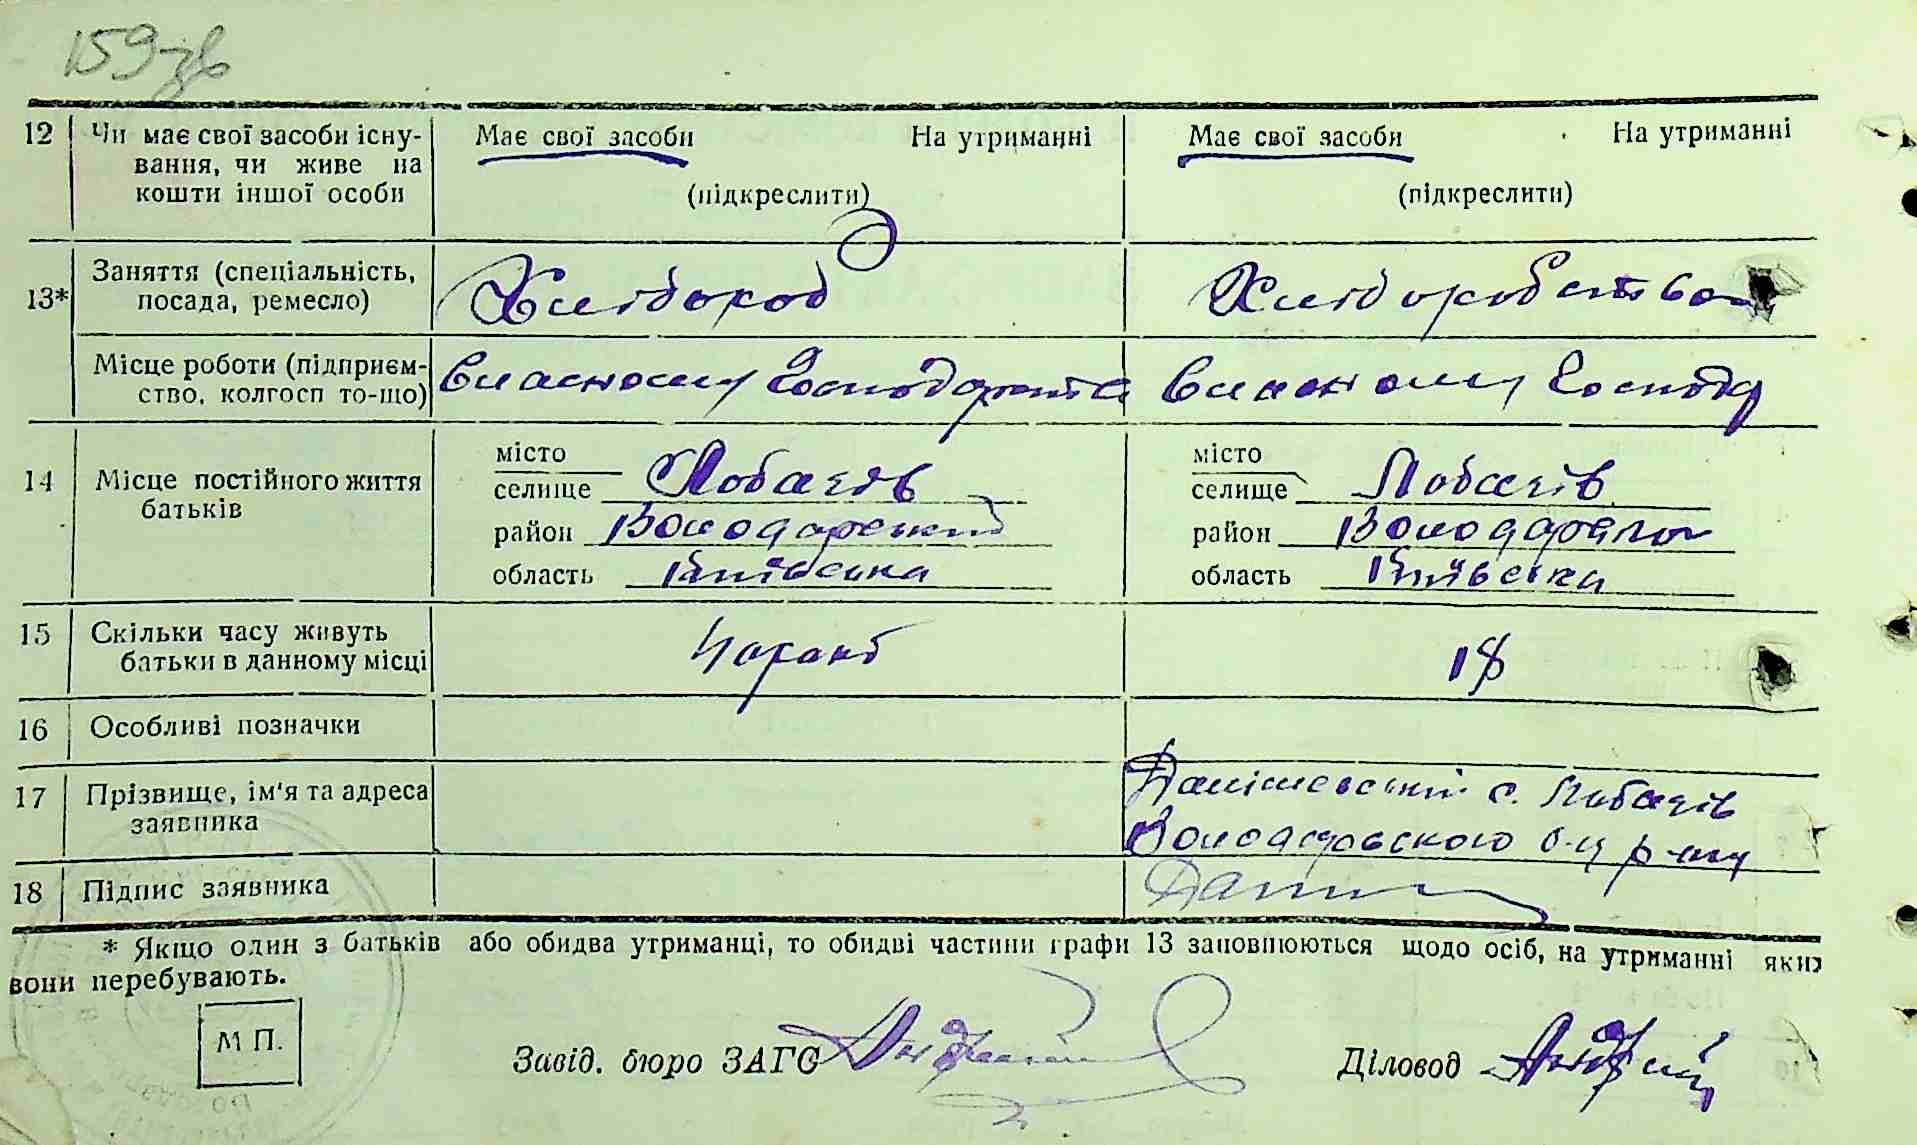 159 зв
12 Чи має свої засоби існу- Має свої засоби На утриманні Має свої засоби На утриманні
вання, чи живе на
кошти іншої особи (підкреслити) (підкреслити)
13* Заняття (спеціальність, Хлібороб Хліборобство
посада, ремесло)
Місце роботи (підприєм- Власному Господарстві Власному Господар
ство, колгосп то-що)
14 Місце постійного життя місто місто
батьків селище Лобачів селище Лобачів
район Володарський район Володарськ
область Київська область Київська
15 Скільки часу живуть 18
батьки в данному місці
16 Особливі позначки
17 Прізвище, ім'я та адреса Данішевський с. Лобачів
заявника Володарського р-ну
18 Підпис заявника Дані
* Якщо один з батьків або обидва утриманці, то обидві частини графи 13 заповнюються щодо осіб, на утриманні яких
вони перебувають.
М П.
Завід. бюро ЗАГС Діловод